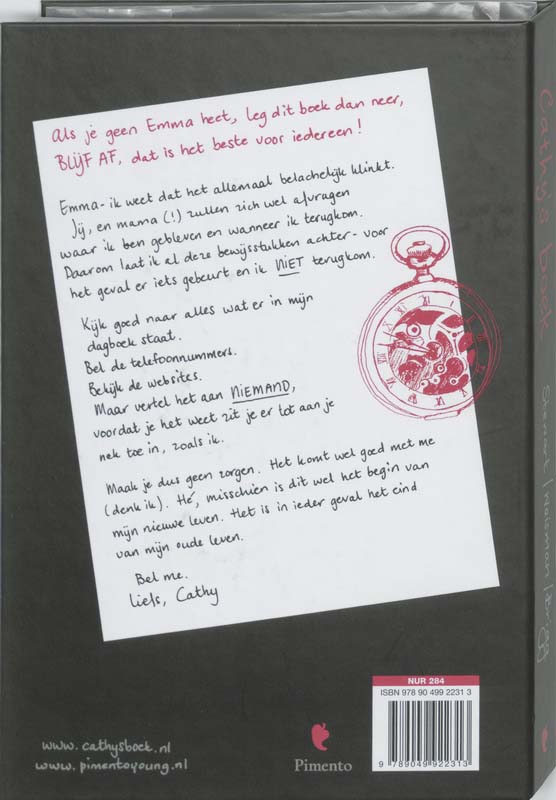 Als je geen Emma heet, leg dit boek dan neer,
BLIJF AF, dat is het beste voor iedereen!
Emma- ik weet dat het allemaal belachelijk klinkt.
Jij, en mama (!) zullen zich wel afvragen
waar ik ben gebleven en wanneer ik terugkom.
Daarom laat ik al deze bewijsstukken achter- voor
het geval er iets gebeurt en ik NIET terugkom.
Kijk goed naar alles wat er in mijn
dagboek staat.
Bel de telefoonnummers.
Bekijk de websites.
Maar vertel het aan NIEMAND,
voordat je het weet zit je er tot aan je
nek toe in, zoals ik.
Maak je dus geen zorgen. Het komt wel goed met me
(denk ik). Hé, misschien is dit wel het begin van
mijn nieuwe leven. Het is in ieder geval het eind
van mijn oude leven.
Bel me.
Liefs, Cathy
www.cathysboek.nl
www.pimentoyoung.nl
Pimento
NUR 284
ISBN 978 90 499 2231 3
9 789049 922313
Cathy's boek